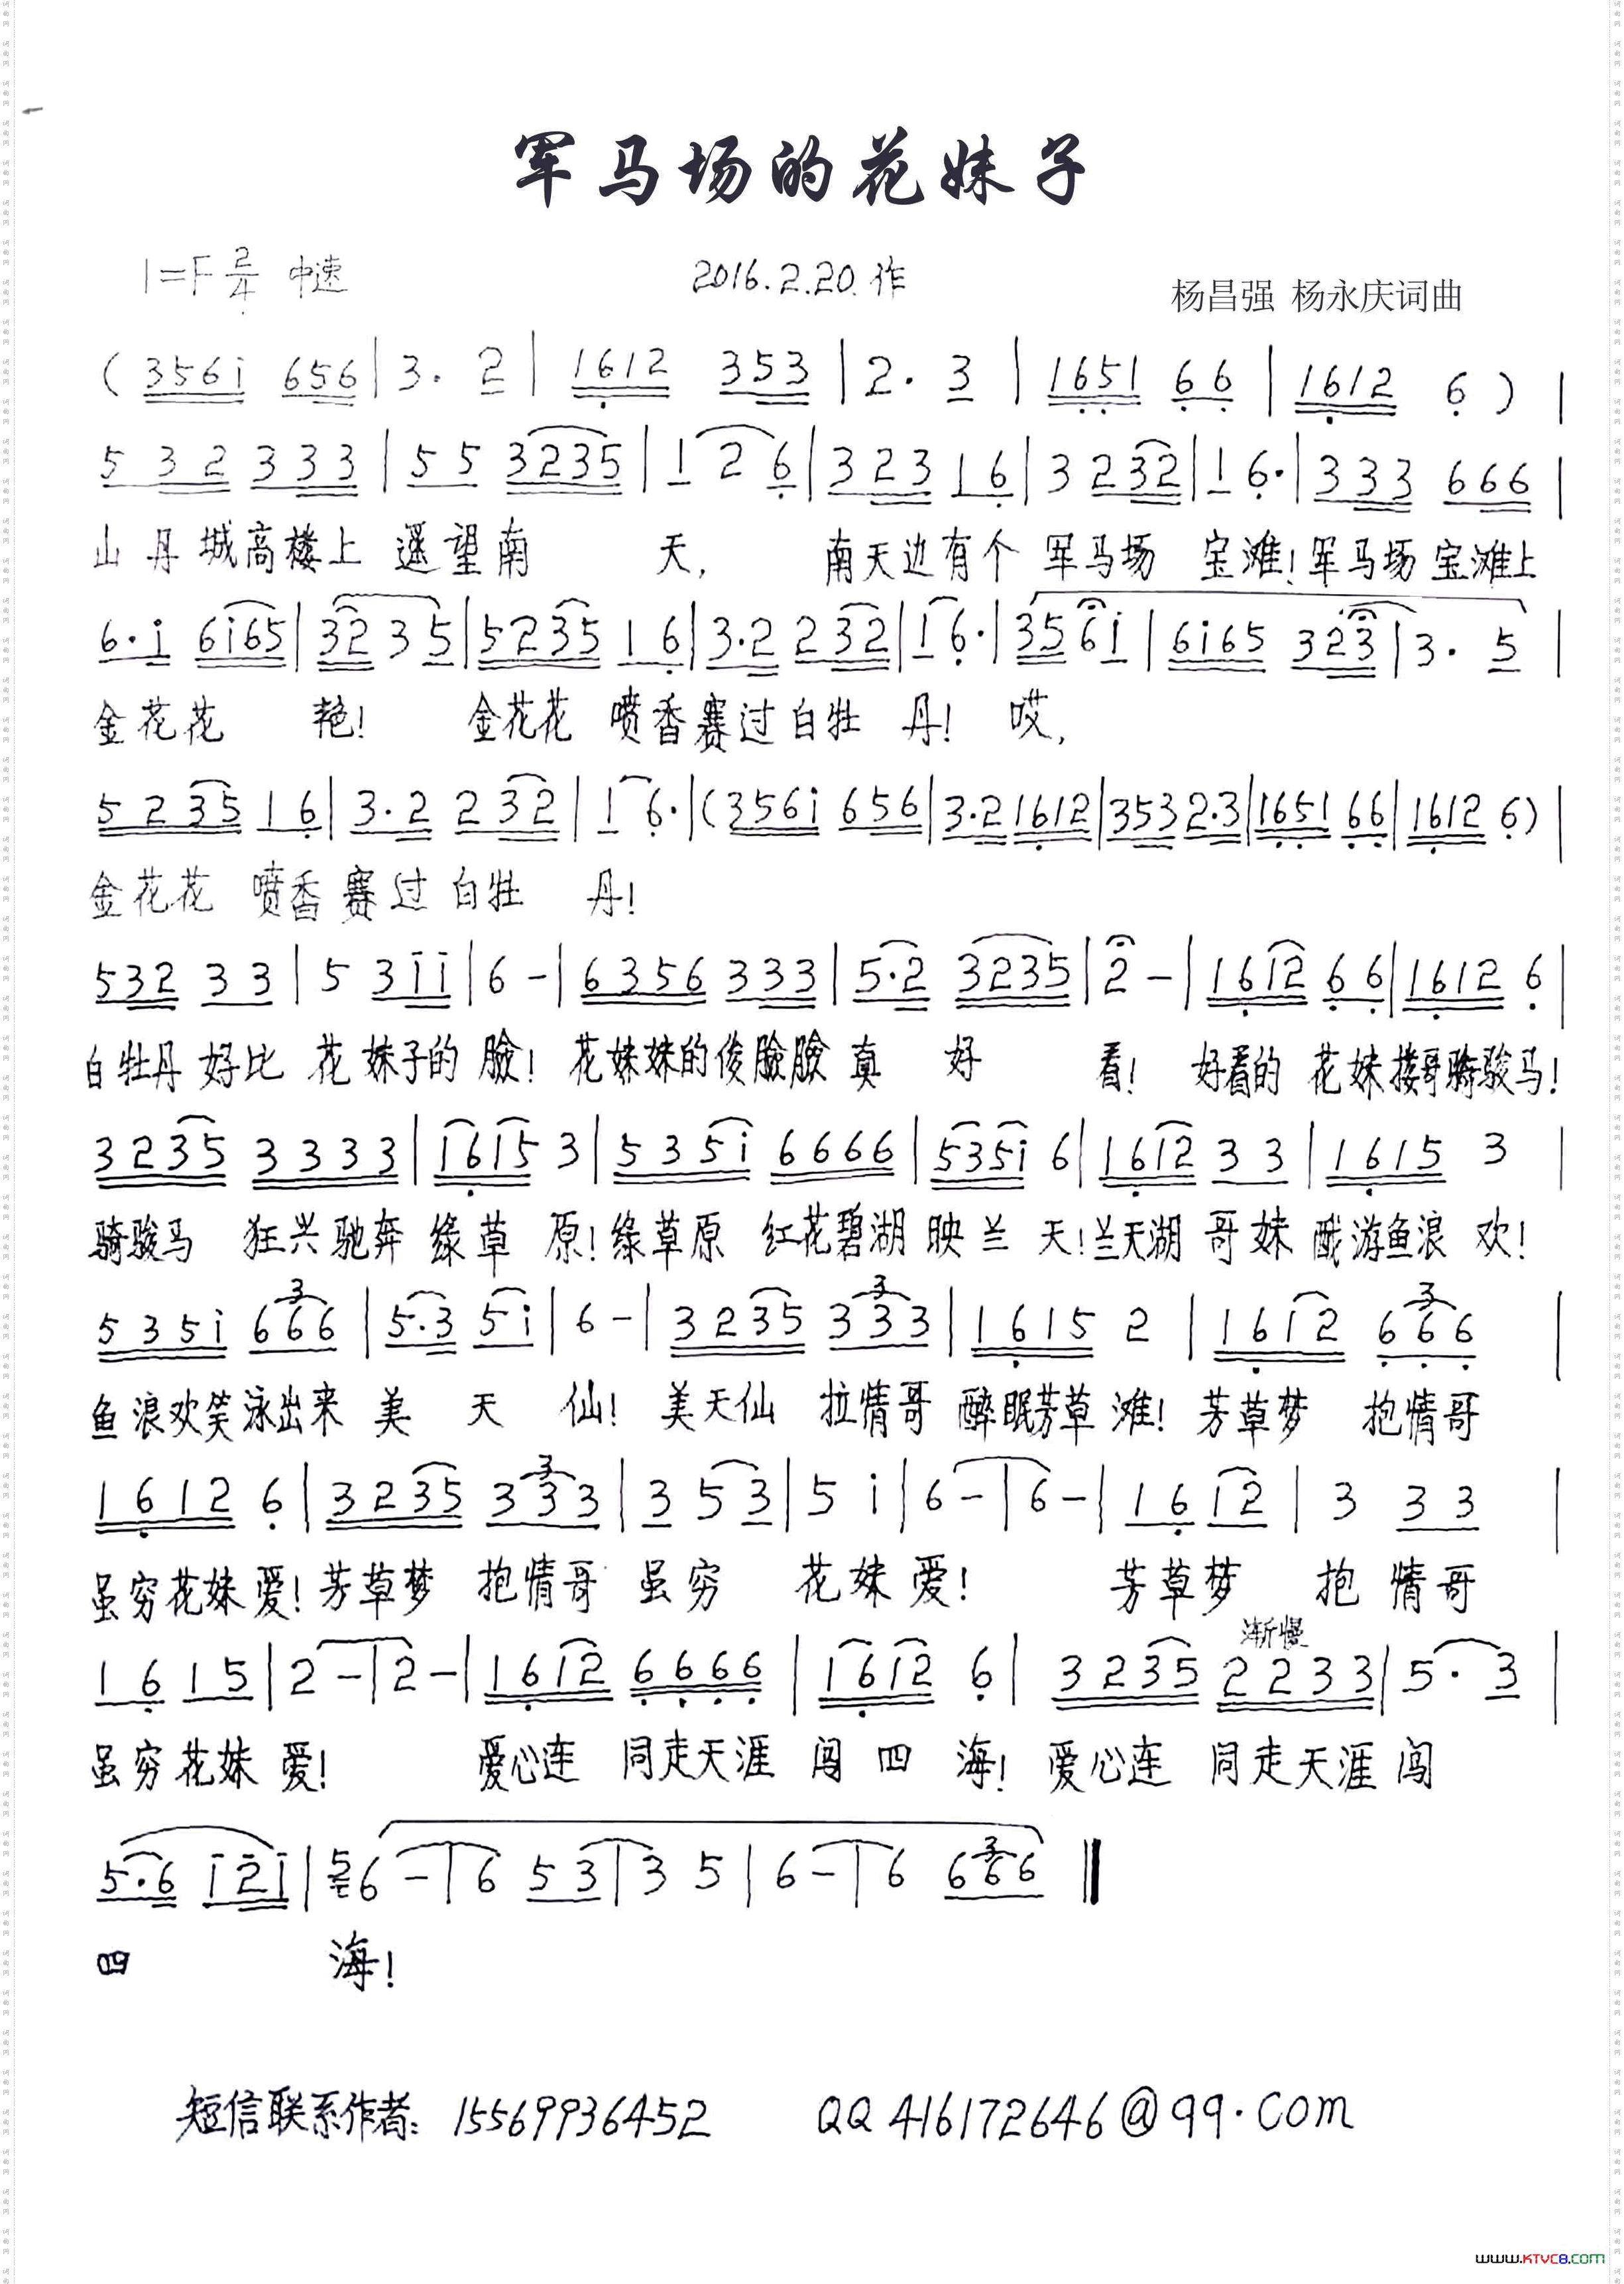 军马场的花妹子
1=F 2/4 中速 2016.2.20.作 杨昌强 杨永庆词曲
( 3561̇ 656 | 3. 2 | 1612 353 | 2. 3 | 1651 66 | 1612 6 ) |
5 32 3 33 | 5 5 3235 | 1 2 6 | 3 23 1 6 | 3 2 32 | 1 6. | 3 33 6 66 |
山丹城高楼上 遥望南 天, 南天边有个 军马场 宝滩! 军马场宝滩上
6. 1̇ 61̇65 | 32 3 5 | 5235 1 6 | 3.2 2 32 | 1 6. | 35 6 1̇ | 61̇65 323 | 3. 5 |
金花花 艳! 金花花 喷香赛过白牡 丹! 哎,
5 2 35 1 6 | 3.2 2 32 | 1 6. | (3561̇ 656 | 3.2 1612 | 353 2.3 | 1651 66 | 1612 6) |
金花花 喷香赛过白牡 丹!
532 3 3 | 5 31̇1̇ | 6 - | 6356 333 | 5.2 3235 | 2 - | 1612 66 | 1612 6 |
白牡丹好比 花妹子的脸! 花妹妹的俊脸脸真 好 看! 好看的 花妹搂哥骑骏马!
3235 3333 | 1615 3 | 5351̇ 6666 | 5351̇ 6 | 1612 3 3 | 1615 3 |
骑骏马 狂兴驰奔 绿草 原! 绿草原 红花碧湖映兰 天! 兰天湖 哥妹 戏游鱼浪 欢!
5351̇ 666 | 5.3 51̇ | 6 - | 3235 333 | 1615 2 | 1612 666 |
鱼浪欢笑泳出来 美 天 仙! 美天仙 拉情哥 醉眠芳草滩! 芳草梦 抱情哥
1612 6 | 3235 333 | 3 5 3 | 5 1̇ | 6 - | 6 - | 16 12 | 3 33 |
虽穷花妹爱! 芳草梦 抱情哥 虽穷 花妹爱! 芳草梦 抱情哥
渐慢
16 15 | 2 - | 2 - | 1612 6666 | 1612 6 | 3235 2233 | 5. 3 |
虽穷花妹爱! 爱心连 同走天涯 闯四 海! 爱心连 同走天涯 闯
5.6 1̇2̇1̇ | 52 6 - | 6 53 | 3 5 | 6 - | 6 666 ‖
四 海!
短信联系作者: 15569936452 QQ 416172646@qq.com
www.KTVC8.com